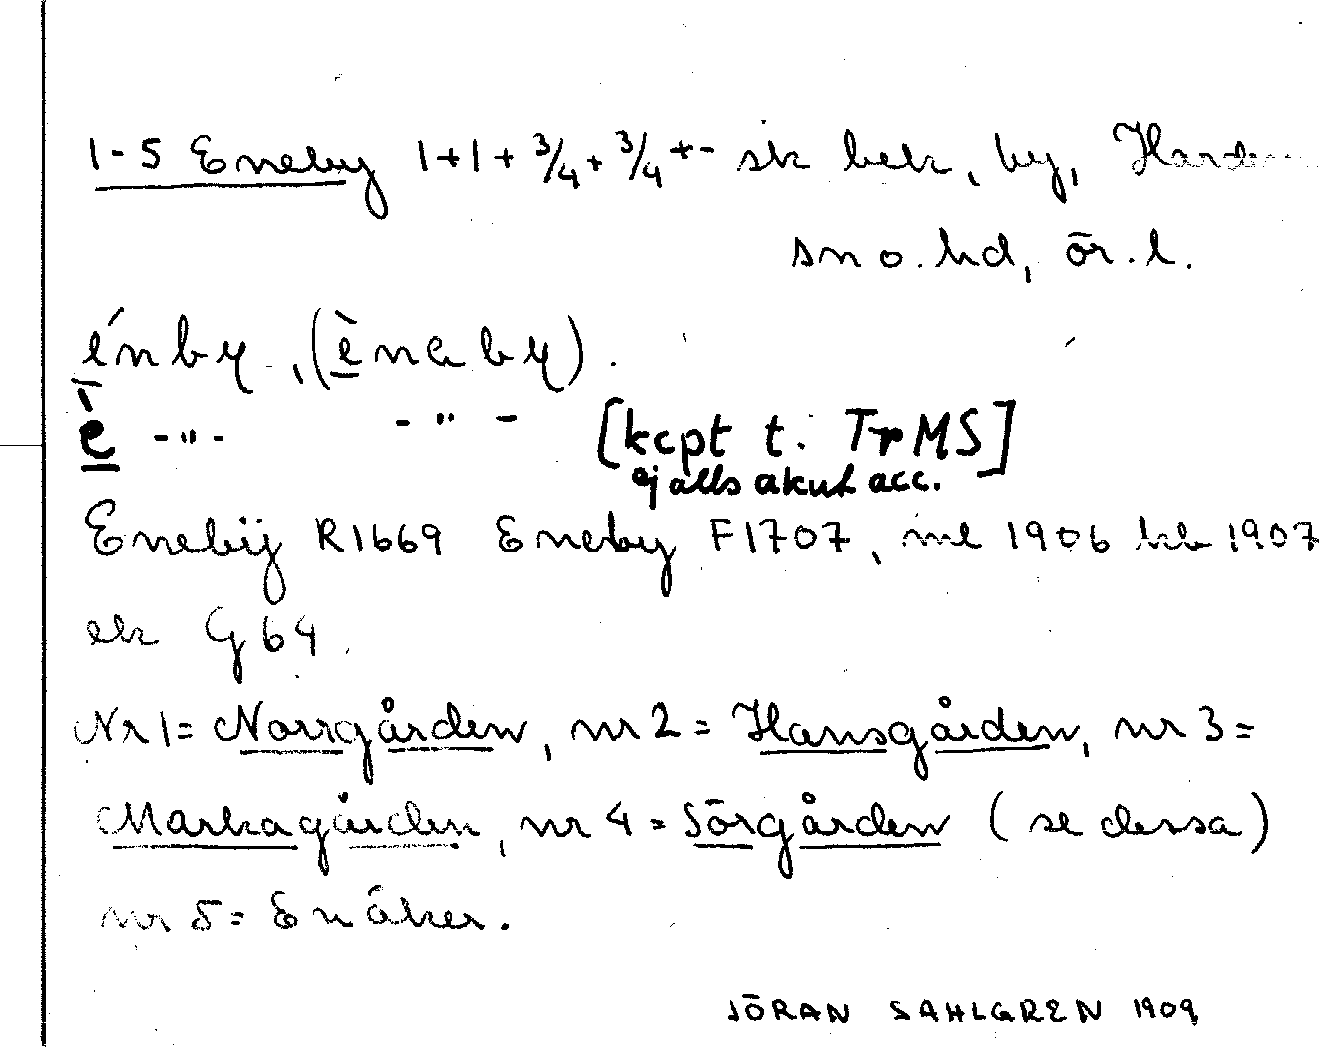 1-5 Eneby 1+1+3/4+3/4+- sk bek, by, Hardemo
sn o. hd, ör. l.
énby, (ènaby).
è -"- -"- [kcpt t. TrMS]
ej alls akut acc.
Enebÿ R1669 Eneby F1707, ml 1906 kb 1907
ek G64.
Nr 1= Norrgården, nr 2 = Hansgården, nr 3 =
Markagården, nr 4 = Sörgården (se dessa)
nr 5 = Enåker.
JÖRAN SAHLGREN 1909